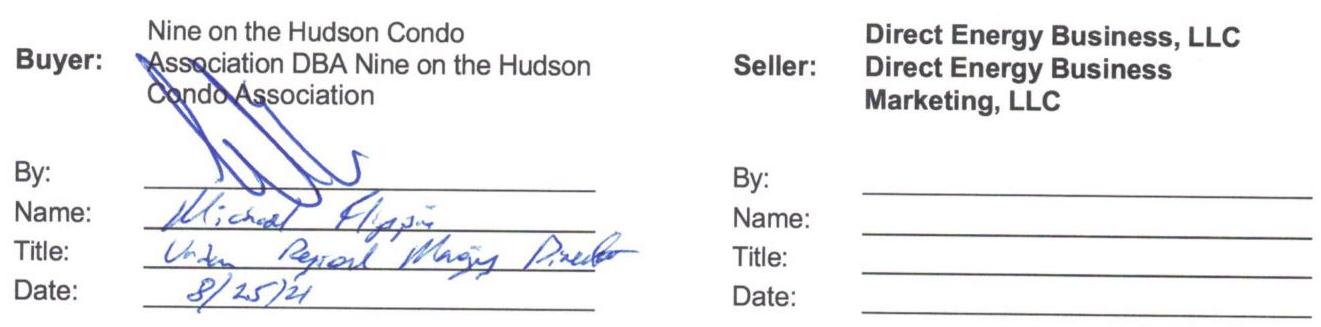 Buyer:
Nine on the Hudson Condo
Association DBA Nine on the Hudson
Condo Association
By:
Name: Michael
Title: Regional Managing Director
Date: 8/25/21
Seller:
Direct Energy Business, LLC
Direct Energy Business
Marketing, LLC
By:
Name:
Title:
Date: